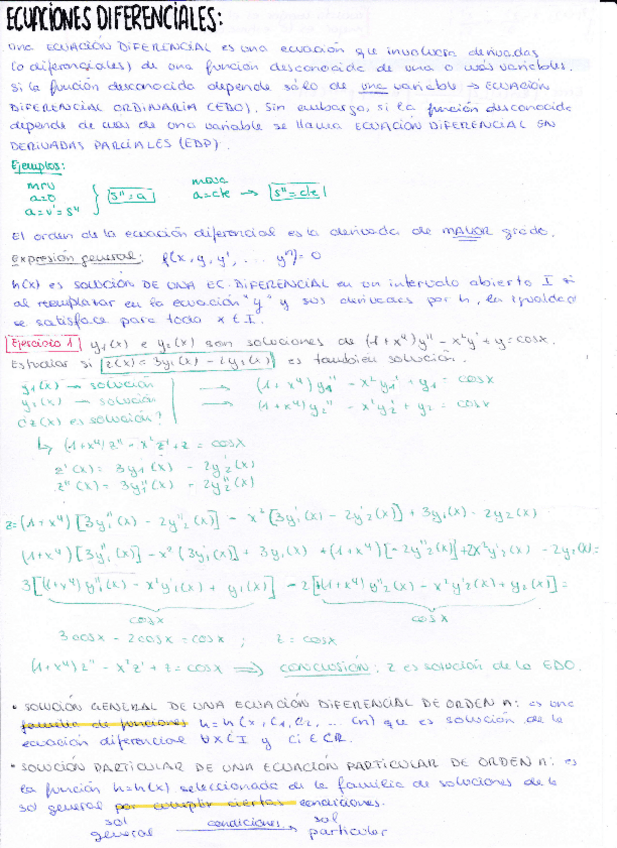 ECUACIONES DIFERENCIALES:
Una ECUACIÓN DIFERENCIAL es una ecuación que involucra derivadas
(o diferenciales) de una función desconocida de una o más variables.
Si la función desconocida depende sólo de una variable → ECUACIÓN
DIFERENCIAL ORDINARIA (EDO). Sin embargo, si la función desconocida
depende de más de una variable se llama ECUACIÓN DIFERENCIAL EN
DERIVADAS PARCIALES (EDP).
Ejemplos:
mru
a=0
a=v'=s''
s''=a
a=cte → s''=cte
El orden de la ecuación diferencial es la derivada de MAYOR grado.
Expresión general: f(x, y, y', ... yⁿ)=0
h(x) es SOLUCIÓN DE UNA EC. DIFERENCIAL en un intervalo abierto I si
al reemplazar en la ecuación "y" y sus derivadas por h, la igualdad
se satisface para todo x ∈ I.
Ejercicio 1 y₁(x) e y₂(x) son soluciones de (1+x⁴)y'' - x²y' + y = cosx.
Estudiar si z(x) = 3y₁(x) - 2y₂(x) es también solución.
y₁(x) → solución → (1+x⁴)y₁'' - x²y₁' + y₁ = cosx
y₂(x) → solución → (1+x⁴)y₂'' - x²y₂' + y₂ = cosx
¿z(x) es solución?
↳ (1+x⁴)z'' - x²z' + z = cosx
z'(x) = 3y₁'(x) - 2y₂'(x)
z''(x) = 3y₁''(x) - 2y₂''(x)
z = (1+x⁴)[3y₁''(x) - 2y₂''(x)] - x²[3y₁'(x) - 2y₂'(x)] + 3y₁(x) - 2y₂(x)
(1+x⁴)[3y₁''(x)] - x²[3y₁'(x)] + 3y₁(x) + (1+x⁴)[-2y₂''(x)] + 2x²y₂'(x) - 2y₂(x) =
3[(1+x⁴)y₁''(x) - x²y₁'(x) + y₁(x)] - 2[(1+x⁴)y₂''(x) - x²y₂'(x) + y₂(x)] =
cosx cosx
3cosx - 2cosx = cosx ; z = cosx
(1+x⁴)z'' - x²z' + z = cosx ⟹ CONCLUSIÓN: z es solución de la EDO.
• SOLUCIÓN GENERAL DE UNA ECUACIÓN DIFERENCIAL DE ORDEN n: es una
familia de funciones h = h(x, C₁, C₂, ... Cn) que es solución de la
ecuación diferencial ∀x ∈ I y Ci ∈ R.
• SOLUCIÓN PARTICULAR DE UNA ECUACIÓN PARTICULAR DE ORDEN n: es
la función h=h(x) seleccionada de la familia de soluciones de la
sol general por cumplir ciertas condiciones.
sol general condiciones → sol particular